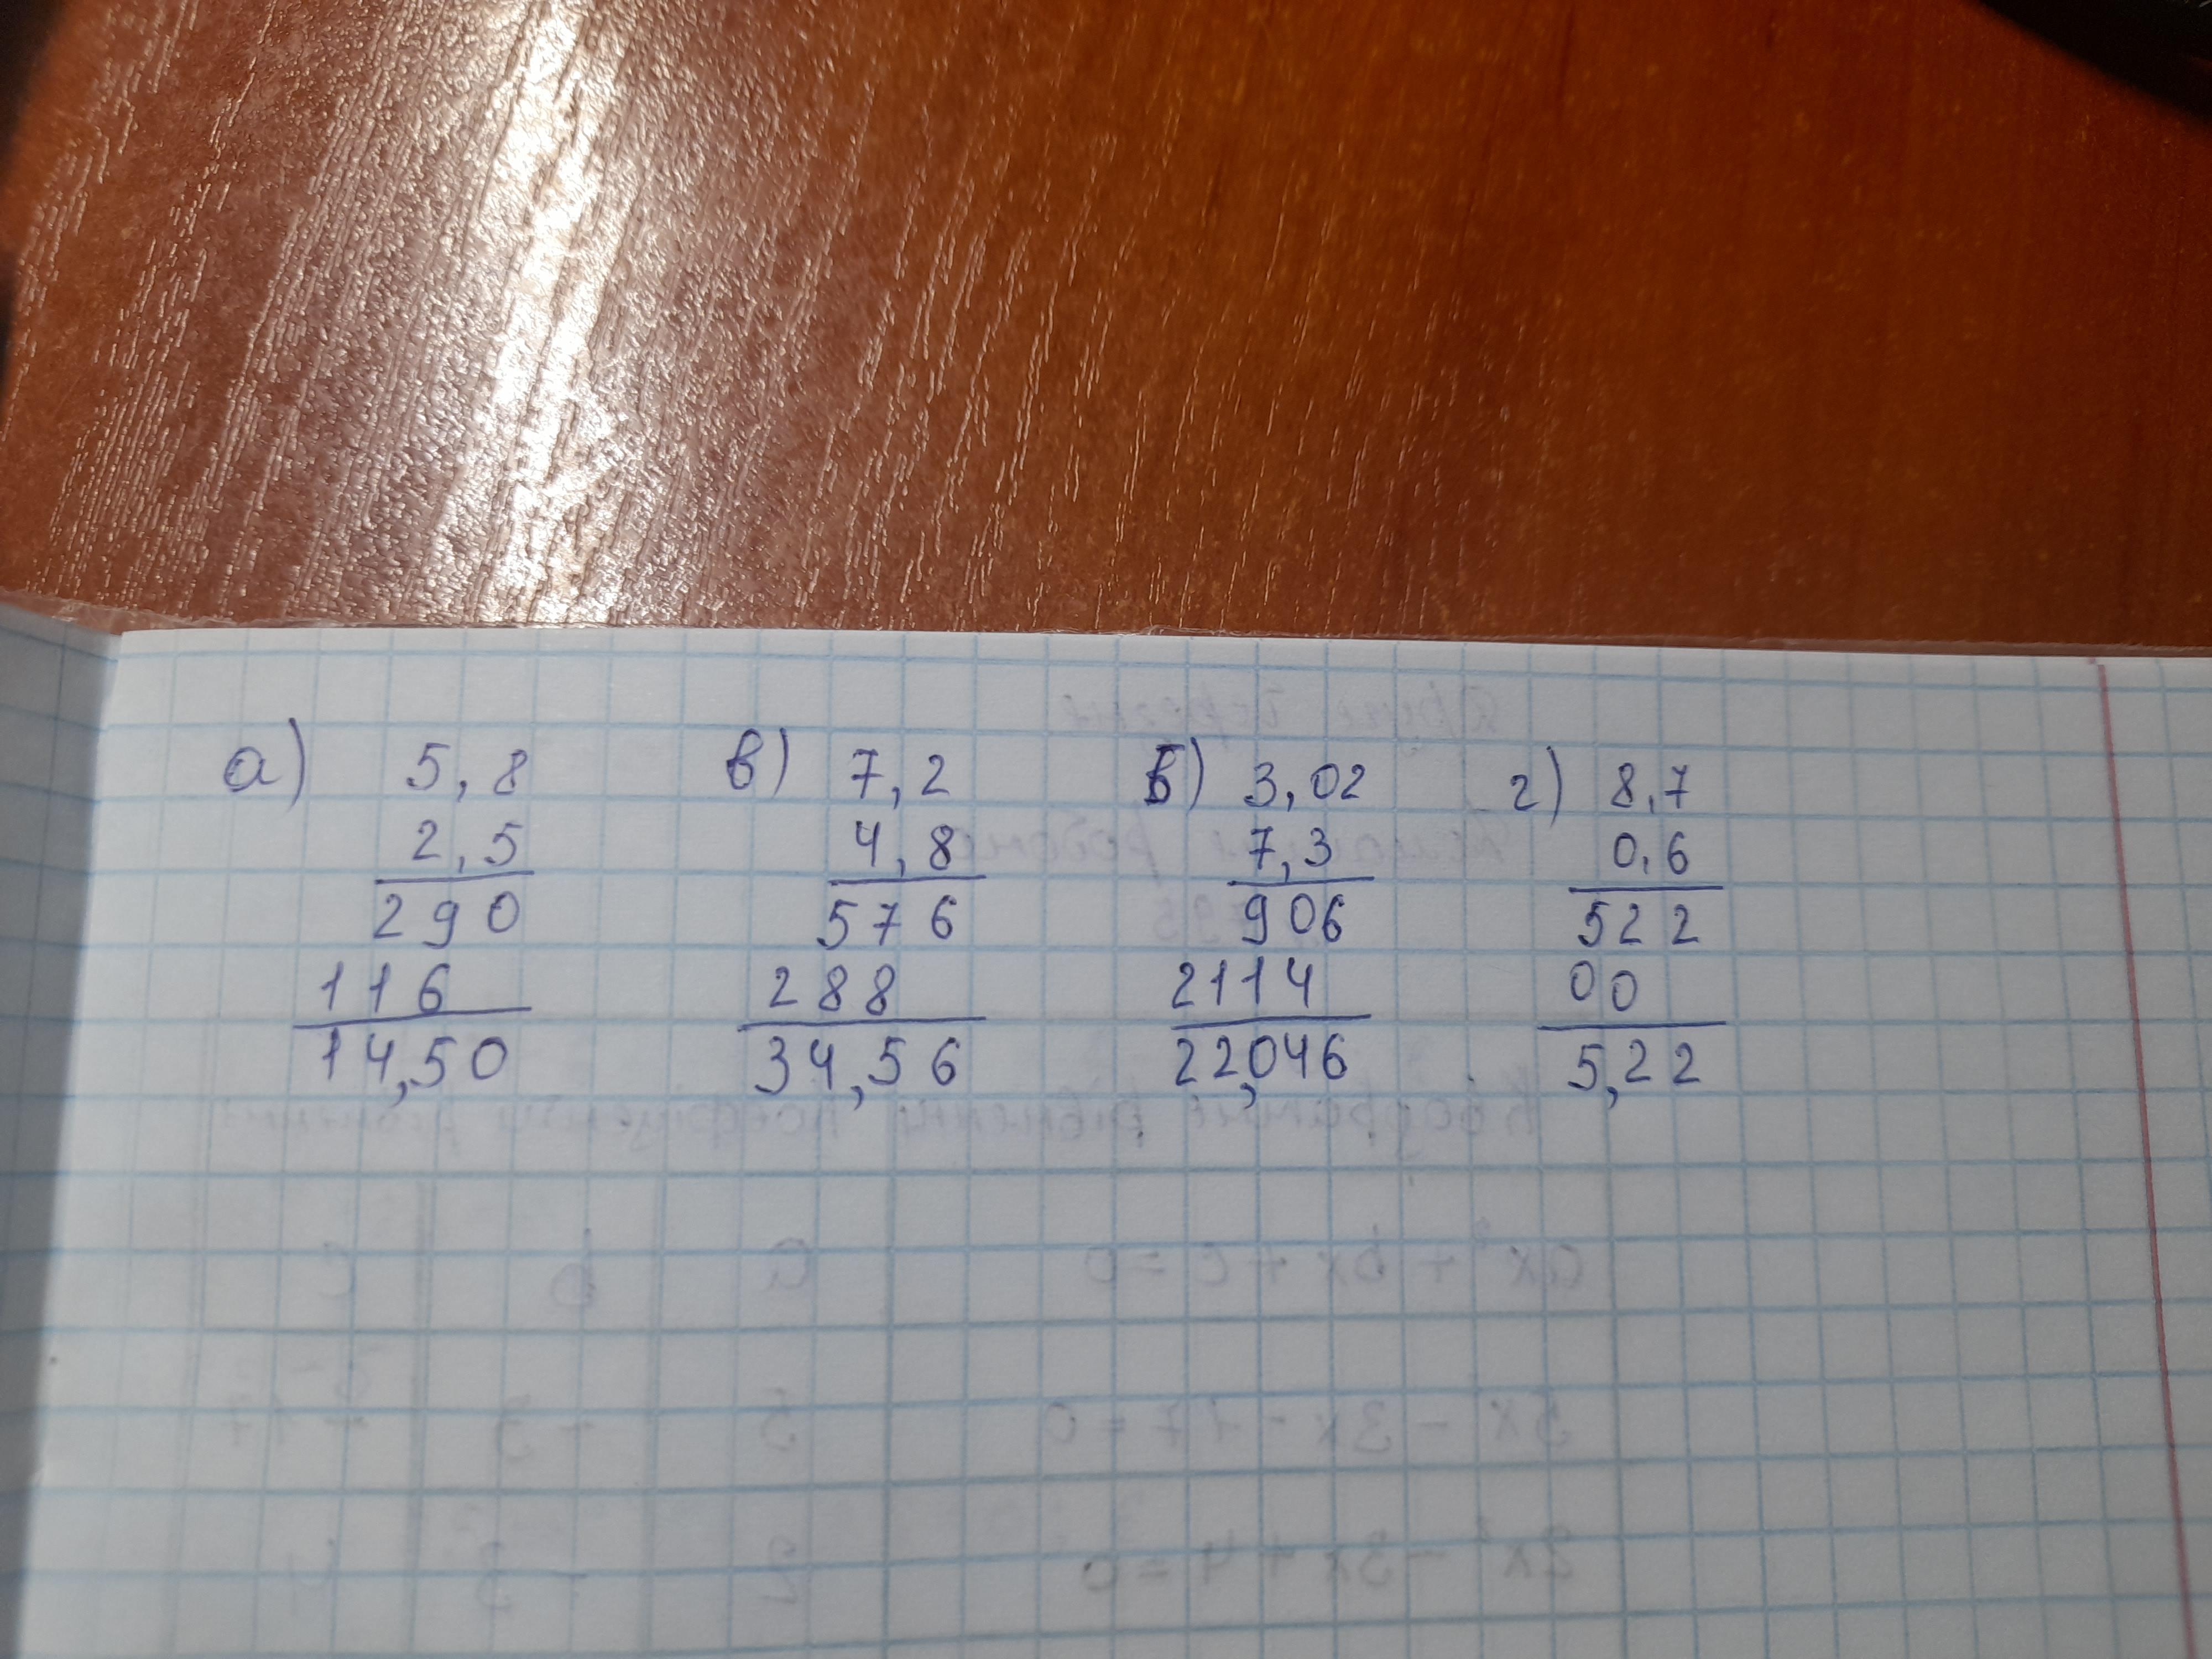 а) 5,8 в) 7,2 б) 3,02 г) 8,7
2,5 4,8 7,3 0,6
290 576 906 522
116 288 2114 00
14,50 34,56 22,046 5,22